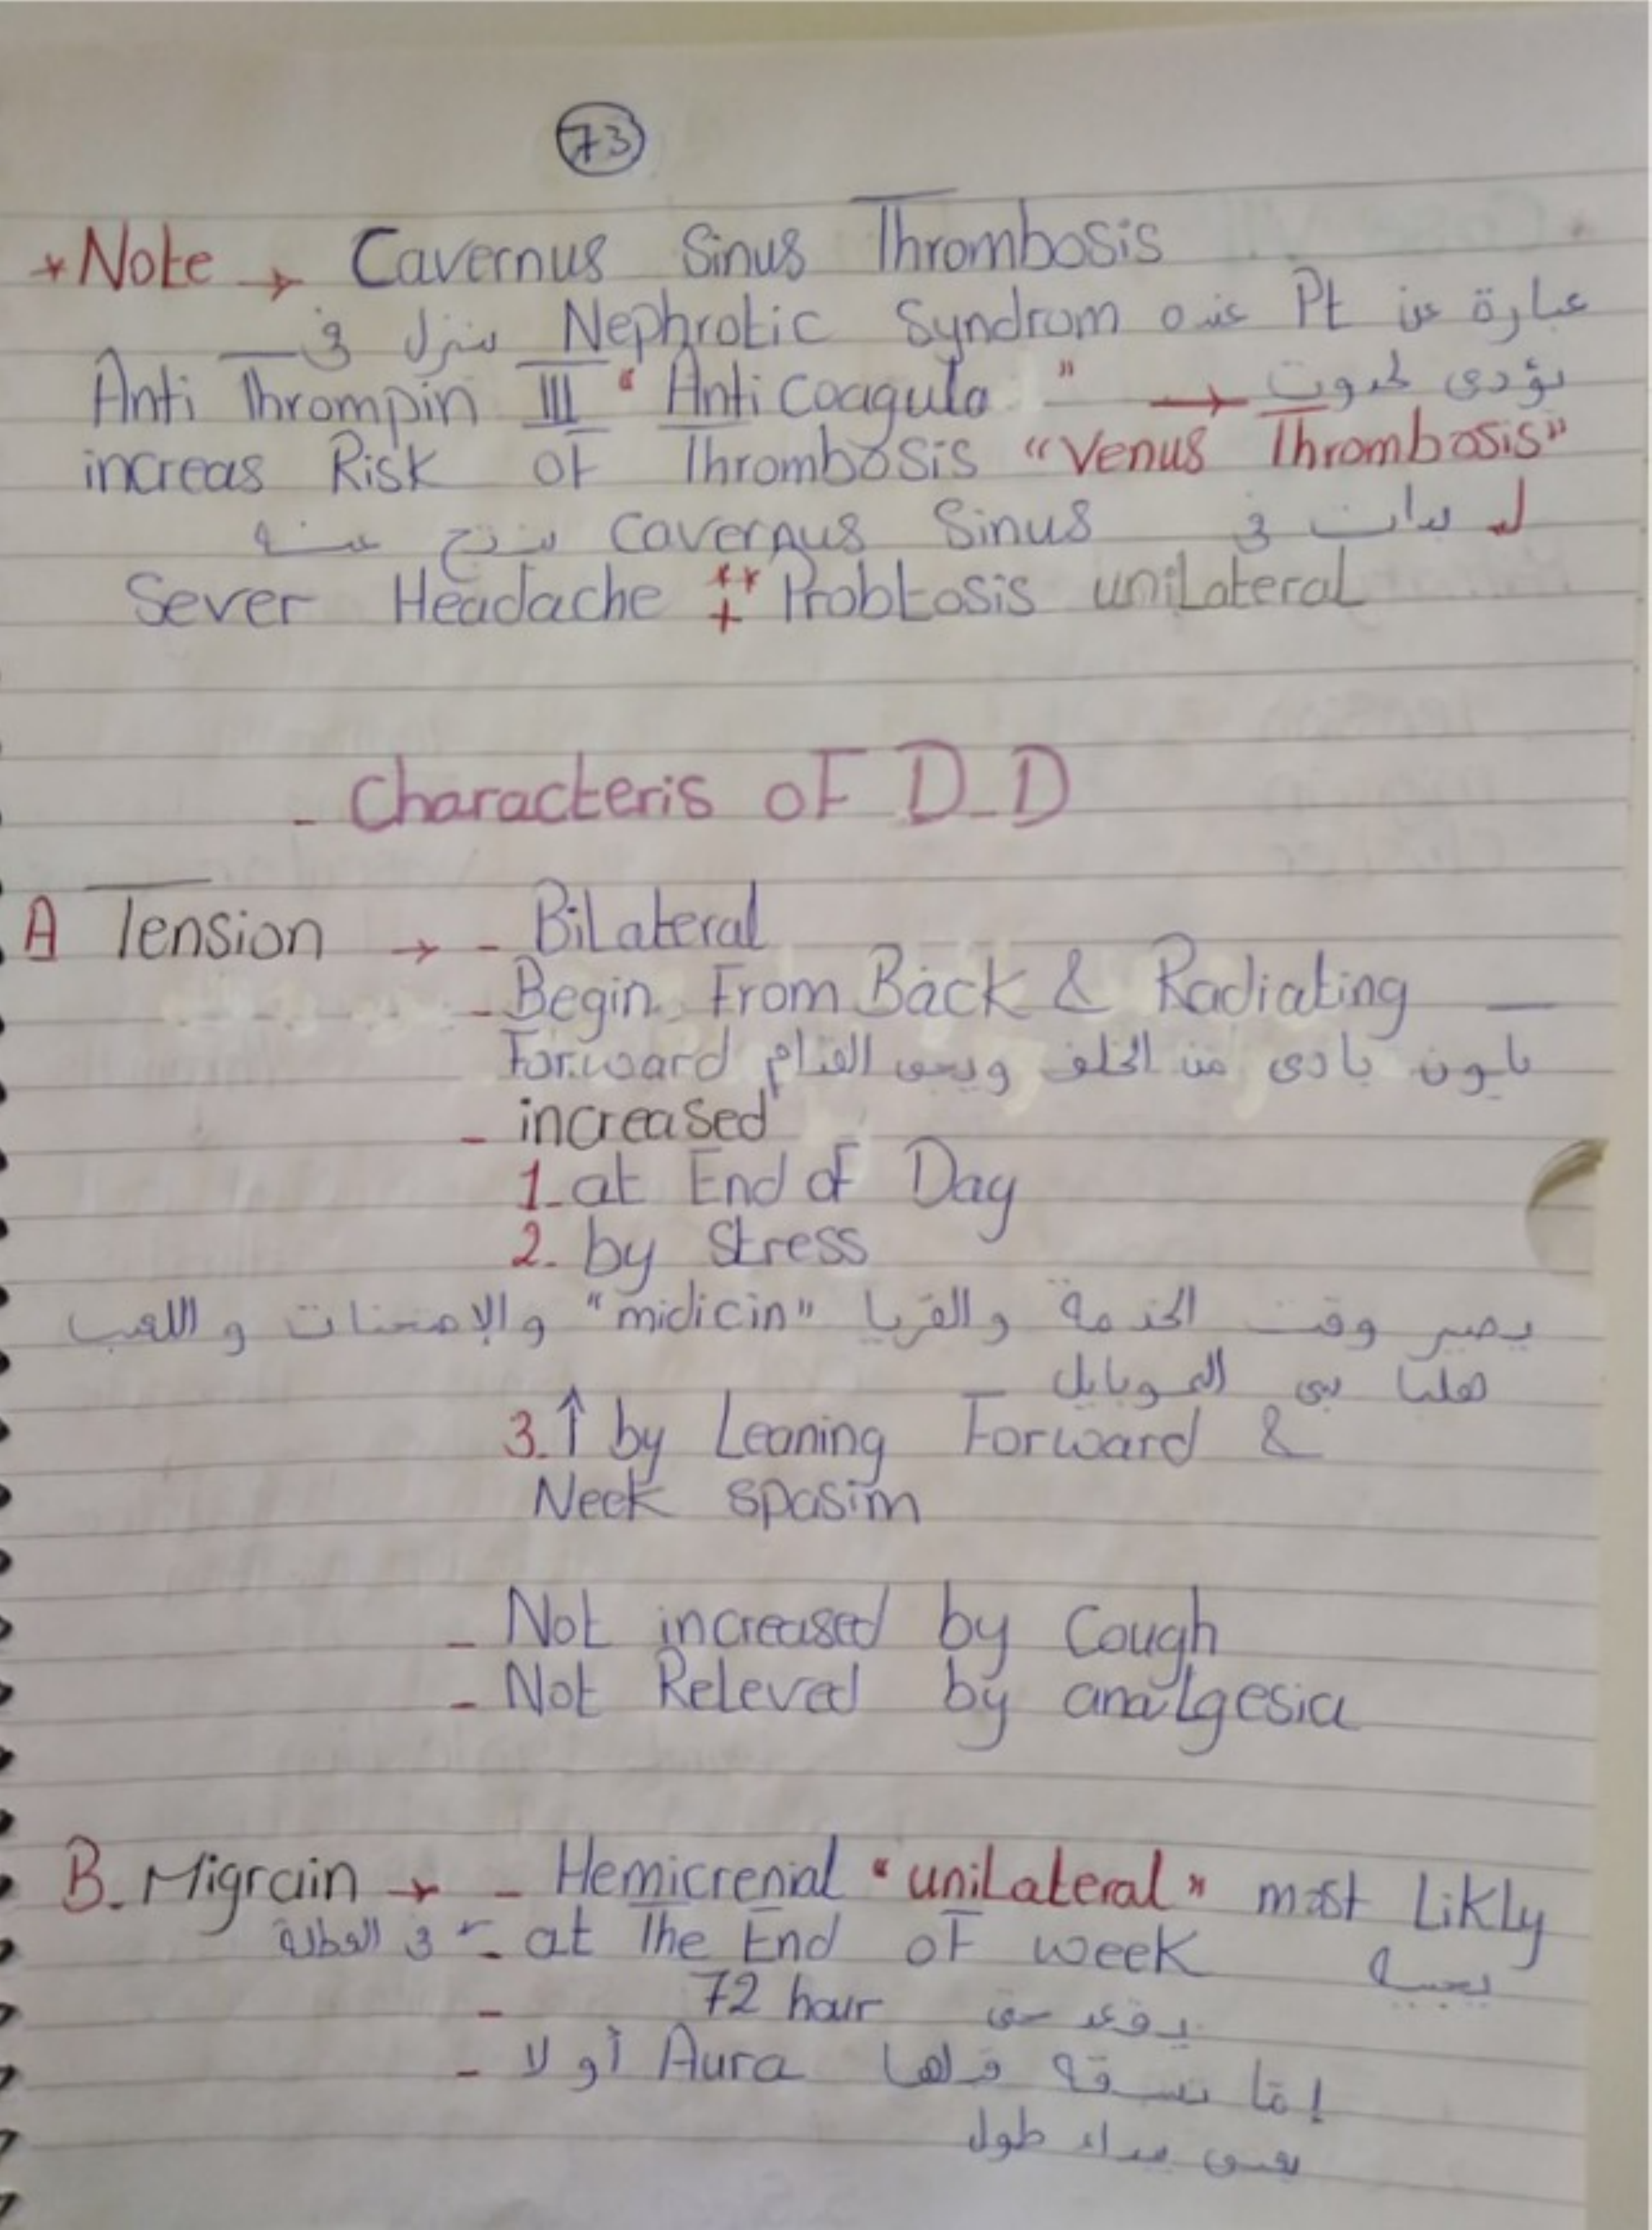 73
* Note → Cavernus Sinus Thrombosis
عبارة عن Pt عنده Nephrotic Syndrom ينزل في
Anti Thrompin III "Anti Coagula " → يؤدى لحدوث
increas Risk of Thrombosis "Venus Thrombosis"
لـ بدات في Cavernus Sinus ينتج عنه
Sever Headache ** + Probtosis uniLateral
- Characteris of D-D
A Tension → - BiLateral
- Begin From Back & Radiating
Forward يكون بادى من الخلف ويجى القدام
- increased
1- at End of Day
2- by Stress
يصير وقت الخدمة والقريا "midicin" والإمتحنات و اللعب
هلبا بى الموبايل
3. ↑ by Leaning Forward &
Neck spasim
- Not increased by Cough
- Not Releved by analgesia
B- Migrain → - Hemicrenial "uniLateral" most Likly
- at The End of week يجيه في العطلة
- 72 hour يقعد حتى
- إمّا تسبقه قبلها Aura أو لا
يعنى يبداء طول